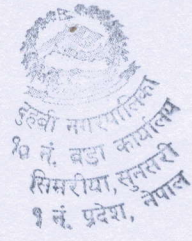 दुहवी नगरपालिका
१० नं. वडा कार्यालय
सिमरीया, सुनसरी
१ नं. प्रदेश, नेपाल